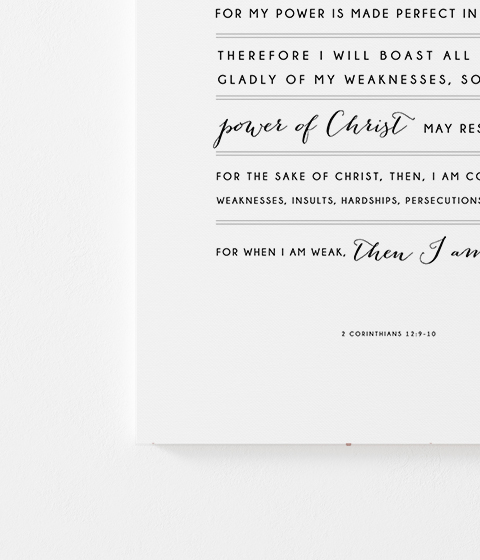 FOR MY POWER IS MADE PERFECT IN
THEREFORE I WILL BOAST ALL
GLADLY OF MY WEAKNESSES, SO
power of Christ MAY RES
FOR THE SAKE OF CHRIST, THEN, I AM CO
WEAKNESSES, INSULTS, HARDSHIPS, PERSECUTIONS
FOR WHEN I AM WEAK, then I am
2 CORINTHIANS 12:9-10